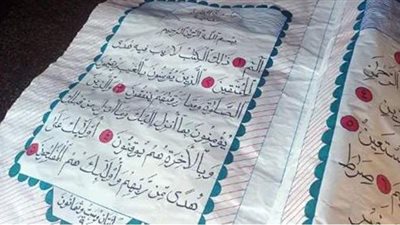 بسم الله الرحمن الرحيم
الم ذلك الكتب لا ريب فيه هدى
للمتقين الذين يؤمنون بالغيب ويقيمون
الصلوة ومما رزقنهم ينفقون والذين
يؤمنون بما أنزل إليك وما أنزل من قبلك
وبالآخرة هم يوقنون أولئك على
هدى من ربهم وأولئك هم المفلحون
وست وثمانون
الرحمن
نستعين
صراط